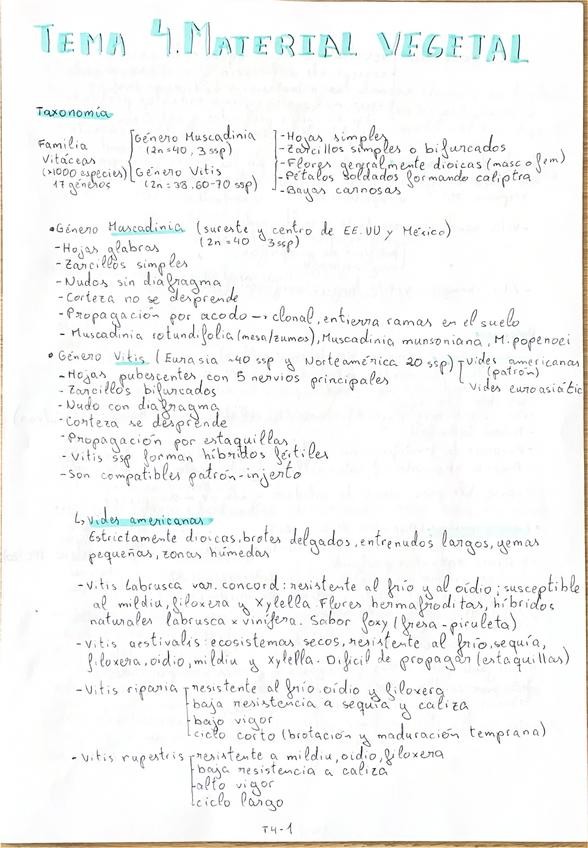 TEMA 4. MATERIAL VEGETAL
Taxonomía
Familia
Vitáceas
(>1000 especies)
17 géneros
Género Muscadinia
(2n=40, 3 ssp)
Género Vitis
(2n=38. 60-70 ssp)
-Hojas simples
-Zarcillos simples o bifurcados
-Flores generalmente dioicas (masc o fem)
-Pétalos soldados formando caliptra
-Bayas carnosas
•Género Muscadinia (sureste y centro de EE.UU y México)
(2n=40 3ssp)
-Hojas glabras
-Zarcillos simples
-Nudos sin diafragma
-Corteza no se desprende
-Propagación por acodo → clonal, entierra ramas en el suelo
-Muscadinia rotundifolia (mesa/zumos), Muscadinia munsoniana, M. popenoei
•Género Vitis (Eurasia ~40 ssp y Norteamérica 20 ssp)
vides americanas
(patrón)
Vides euroasiátic
-Hojas pubescentes con 5 nervios principales
-Zarcillos bifurcados
-Nudo con diafragma
-Corteza se desprende
-Propagación por estaquillas
-Vitis ssp forman híbridos fértiles
-Son compatibles patrón-injerto
↳ Vides americanas
Estrictamente dioicas, brotes delgados, entrenudos largos, yemas
pequeñas, zonas húmedas
-Vitis Labrusca var. concord: resistente al frío y al oídio; susceptible
al mildiu, filoxera y Xylella. Flores hermafroditas, híbridos
naturales labrusca x vinífera. Sabor foxy (fresa-piruleta)
-Vitis aestivalis: ecosistemas secos, resistente al frío, sequía,
filoxera, oídio, mildiu y Xylella. Difícil de propagar (estaquillas)
-Vitis riparia
resistente al frío. oídio y filoxera
baja resistencia a sequía y caliza
bajo vigor
ciclo corto (brotación y maduración temprana)
-Vitis rupestris
resistente a mildiu, oídio, filoxera
baja resistencia a caliza
alto vigor
ciclo largo
T4-1